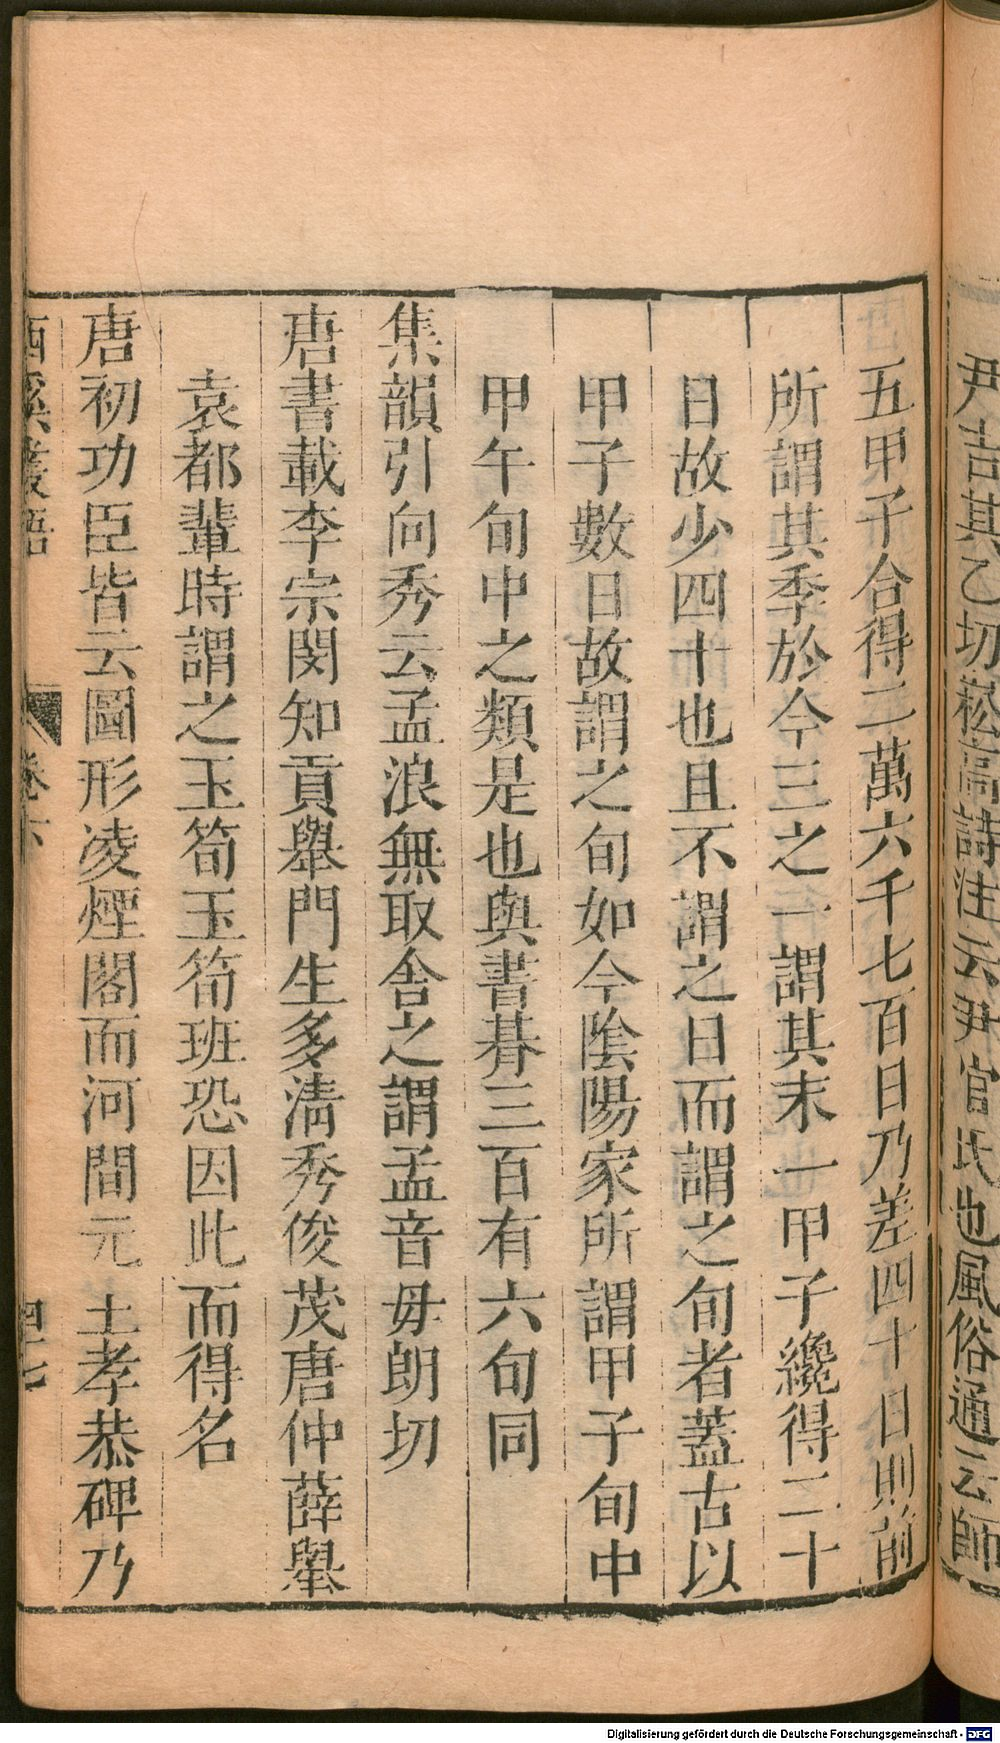 尹吉其乙切崧高詩注云尹官氏也風俗通云師
五甲子合得二萬六千七百日乃差四十日則前
所謂其季於今三之一謂其末一甲子纔得二十
日故少四十也且不謂之日而謂之旬者蓋古以
甲子數日故謂之旬如今陰陽家所謂甲子旬中
甲午旬中之類是也與書朞三百有六旬同
集韻引向秀云孟浪無取舍之謂孟音毋朗切
唐書載李宗閔知貢舉門生多清秀俊茂唐仲薛舉
袁都輩時謂之玉筍玉筍班恐因此而得名
唐初功臣皆云圖形凌煙閣而河間元王孝恭碑乃
西溪叢語 卷六 四七
Digitalisierung gefördert durch die Deutsche Forschungsgemeinschaft - DFG